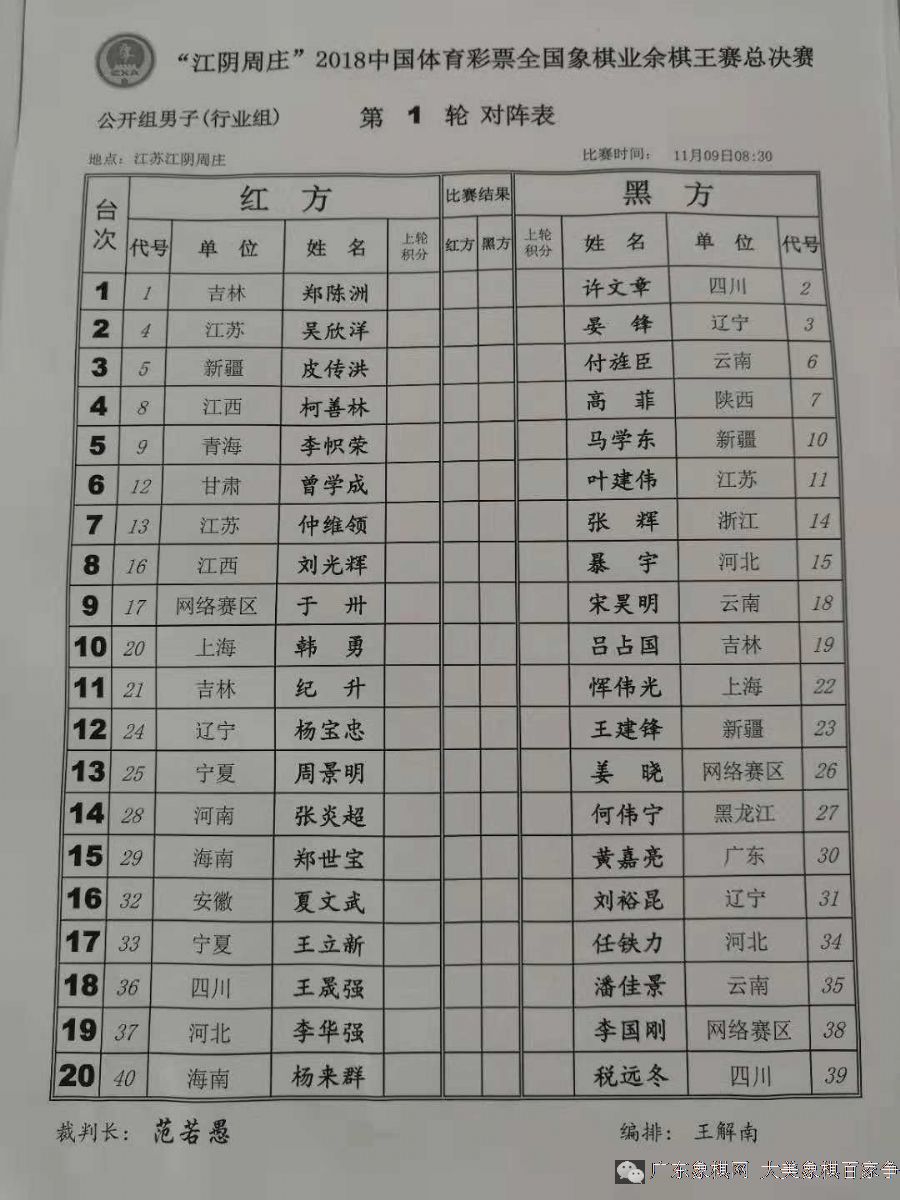 “江阴周庄”2018中国体育彩票全国象棋业余棋王赛总决赛
公开组男子(行业组) 第 1 轮 对阵表
地点: 江苏江阴周庄 比赛时间: 11月09日08:30
台次 红方 比赛结果 黑方
代号 单位 姓名 上轮积分 红方 黑方 上轮积分 姓名 单位 代号
1 1 吉林 郑陈洲 许文章 四川 2
2 4 江苏 吴欣洋 晏锋 辽宁 3
3 5 新疆 皮传洪 付旌臣 云南 6
4 8 江西 柯善林 高菲 陕西 7
5 9 青海 李帜荣 马学东 新疆 10
6 12 甘肃 曾学成 叶建伟 江苏 11
7 13 江苏 仲维领 张辉 浙江 14
8 16 江西 刘光辉 暴宇 河北 15
9 17 网络赛区 于卅 宋昊明 云南 18
10 20 上海 韩勇 吕占国 吉林 19
11 21 吉林 纪升 恽伟光 上海 22
12 24 辽宁 杨宝忠 王建锋 新疆 23
13 25 宁夏 周景明 姜晓 网络赛区 26
14 28 河南 张炎超 何伟宁 黑龙江 27
15 29 海南 郑世宝 黄嘉亮 广东 30
16 32 安徽 夏文武 刘裕昆 辽宁 31
17 33 宁夏 王立新 任铁力 河北 34
18 36 四川 王晟强 潘佳景 云南 35
19 37 河北 李华强 李国刚 网络赛区 38
20 40 海南 杨来群 税远冬 四川 39
裁判长: 范若愚 编排: 王解南
广东象棋网 大美象棋百家争